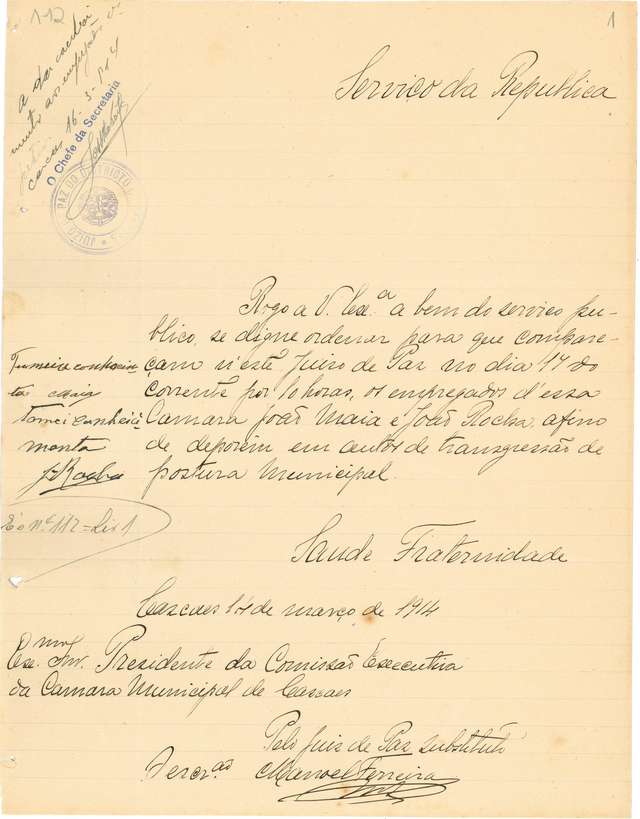 112
1
a dar conheci
mento aos empregados
Cascaes 16-3-914
O Chefe da Secretaria
JUIZO PAZ DO
Serviço da Republica
Rogo a V. Ex.ª a bem do serviço pu-
blico, se digne ordenar para que compare-
çam n'este Juizo de Paz no dia 17 do
corrente por 10 horas, os empregados d'essa
Camara João Maia e João Rocha, afim
de deporem em autos de transgressão de
postura Municipal.
Tomei conhecimen
to Maia
Tomei conheci
mento
J Rocha
E o nº 112 = Liv 1
Saude Fraternidade
Cascaes 14 de março de 1914
Exc.mo Snr. Presidente da Comissão Executiva
da Camara Municipal de Cascaes
Pelo Juis de Paz substituto
O escr.ão Manoel Ferreira